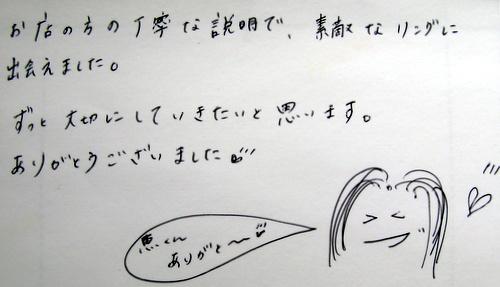 お店の方の丁寧な説明で、素敵なリングに
出会えました。
ずっと大切にしていきたいと思います。
ありがとうございました
くん
ありがと〜